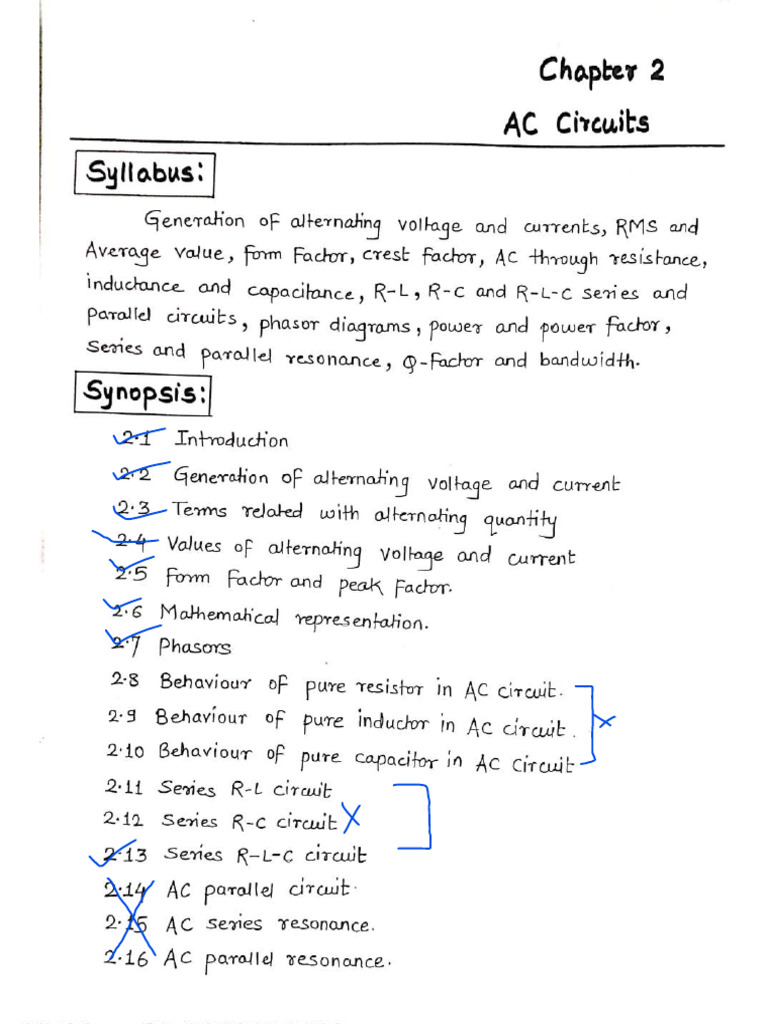 Chapter 2
AC Circuits
Syllabus:
Generation of alternating voltage and currents, RMS and
Average value, form Factor, crest factor, AC through resistance,
inductance and capacitance, R-L, R-C and R-L-C series and
parallel circuits, phasor diagrams, power and power factor,
Series and parallel resonance, Q-factor and bandwidth.
Synopsis:
2.1 Introduction
2.2 Generation of alternating voltage and current
2.3 Terms related with alternating quantity
2.4 Values of alternating voltage and current
2.5 Form Factor and peak Factor.
2.6 Mathematical representation.
2.7 Phasors
2.8 Behaviour of pure resistor in AC circuit.
2.9 Behaviour of pure inductor in AC circuit.
2.10 Behaviour of pure capacitor in AC Circuit
2.11 Series R-L circuit
2.12 Series R-C circuit
2.13 Series R-L-C circuit
2.14 AC parallel circuit.
2.15 AC series resonance.
2.16 AC parallel resonance.